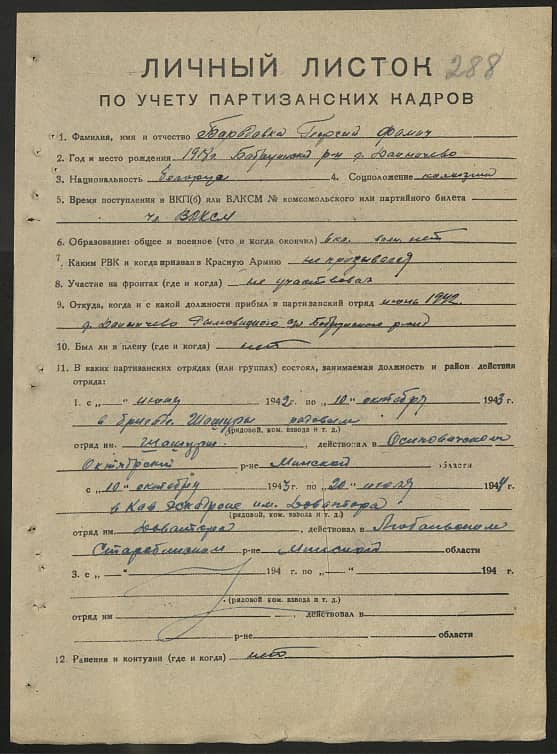 ЛИЧНЫЙ ЛИСТОК 288
ПО УЧЕТУ ПАРТИЗАНСКИХ КАДРОВ
1. Фамилия, имя и отчество Бородавка Фомич
2. Год и место рождения Бобруйский р-н д.
3. Национальность белорус 4. Соцположение колхозник
5. Время поступления в ВКП(б) или ВЛКСМ № комсомольского или партийного билета
чл. ВЛКСМ
6. Образование: общее и военное (что и когда окончил) нет
7. Каким РВК и когда призван в Красную Армию не призывался
8. Участие на фронтах (где и когда) не участвовал
9. Откуда, когда и с какой должности прибыл в партизанский отряд июнь 1942.
д. Бобруйского р-на
10. Был ли в плену (где и когда) нет
11. В каких партизанских отрядах (или группах) состоял, занимаемая должность и район действия
отряда:
1. с „ “ июня 1942 г. по „10“ октября 1943 г.
в бригаде Шашуры рядовым
(рядовой, ком. взвода и т. д.)
отряд им. Шашуры, действовал в Осиповичском
Октябрский р-не Минской области
с „10“ октября 1943 г. по „20“ июля 1944 г.
в Кав эскадроне им. Доватора
(рядовой, ком. взвода и т. д.)
отряд им Доватора, действовал в Любаньском
р-не Минской области
3. с „ “ 194 г. по „ “ 194 г.
(рядовой, ком. взвода и т. д.)
отряд им , действовал в
р-не области
12. Ранения и контузии (где и когда) нет